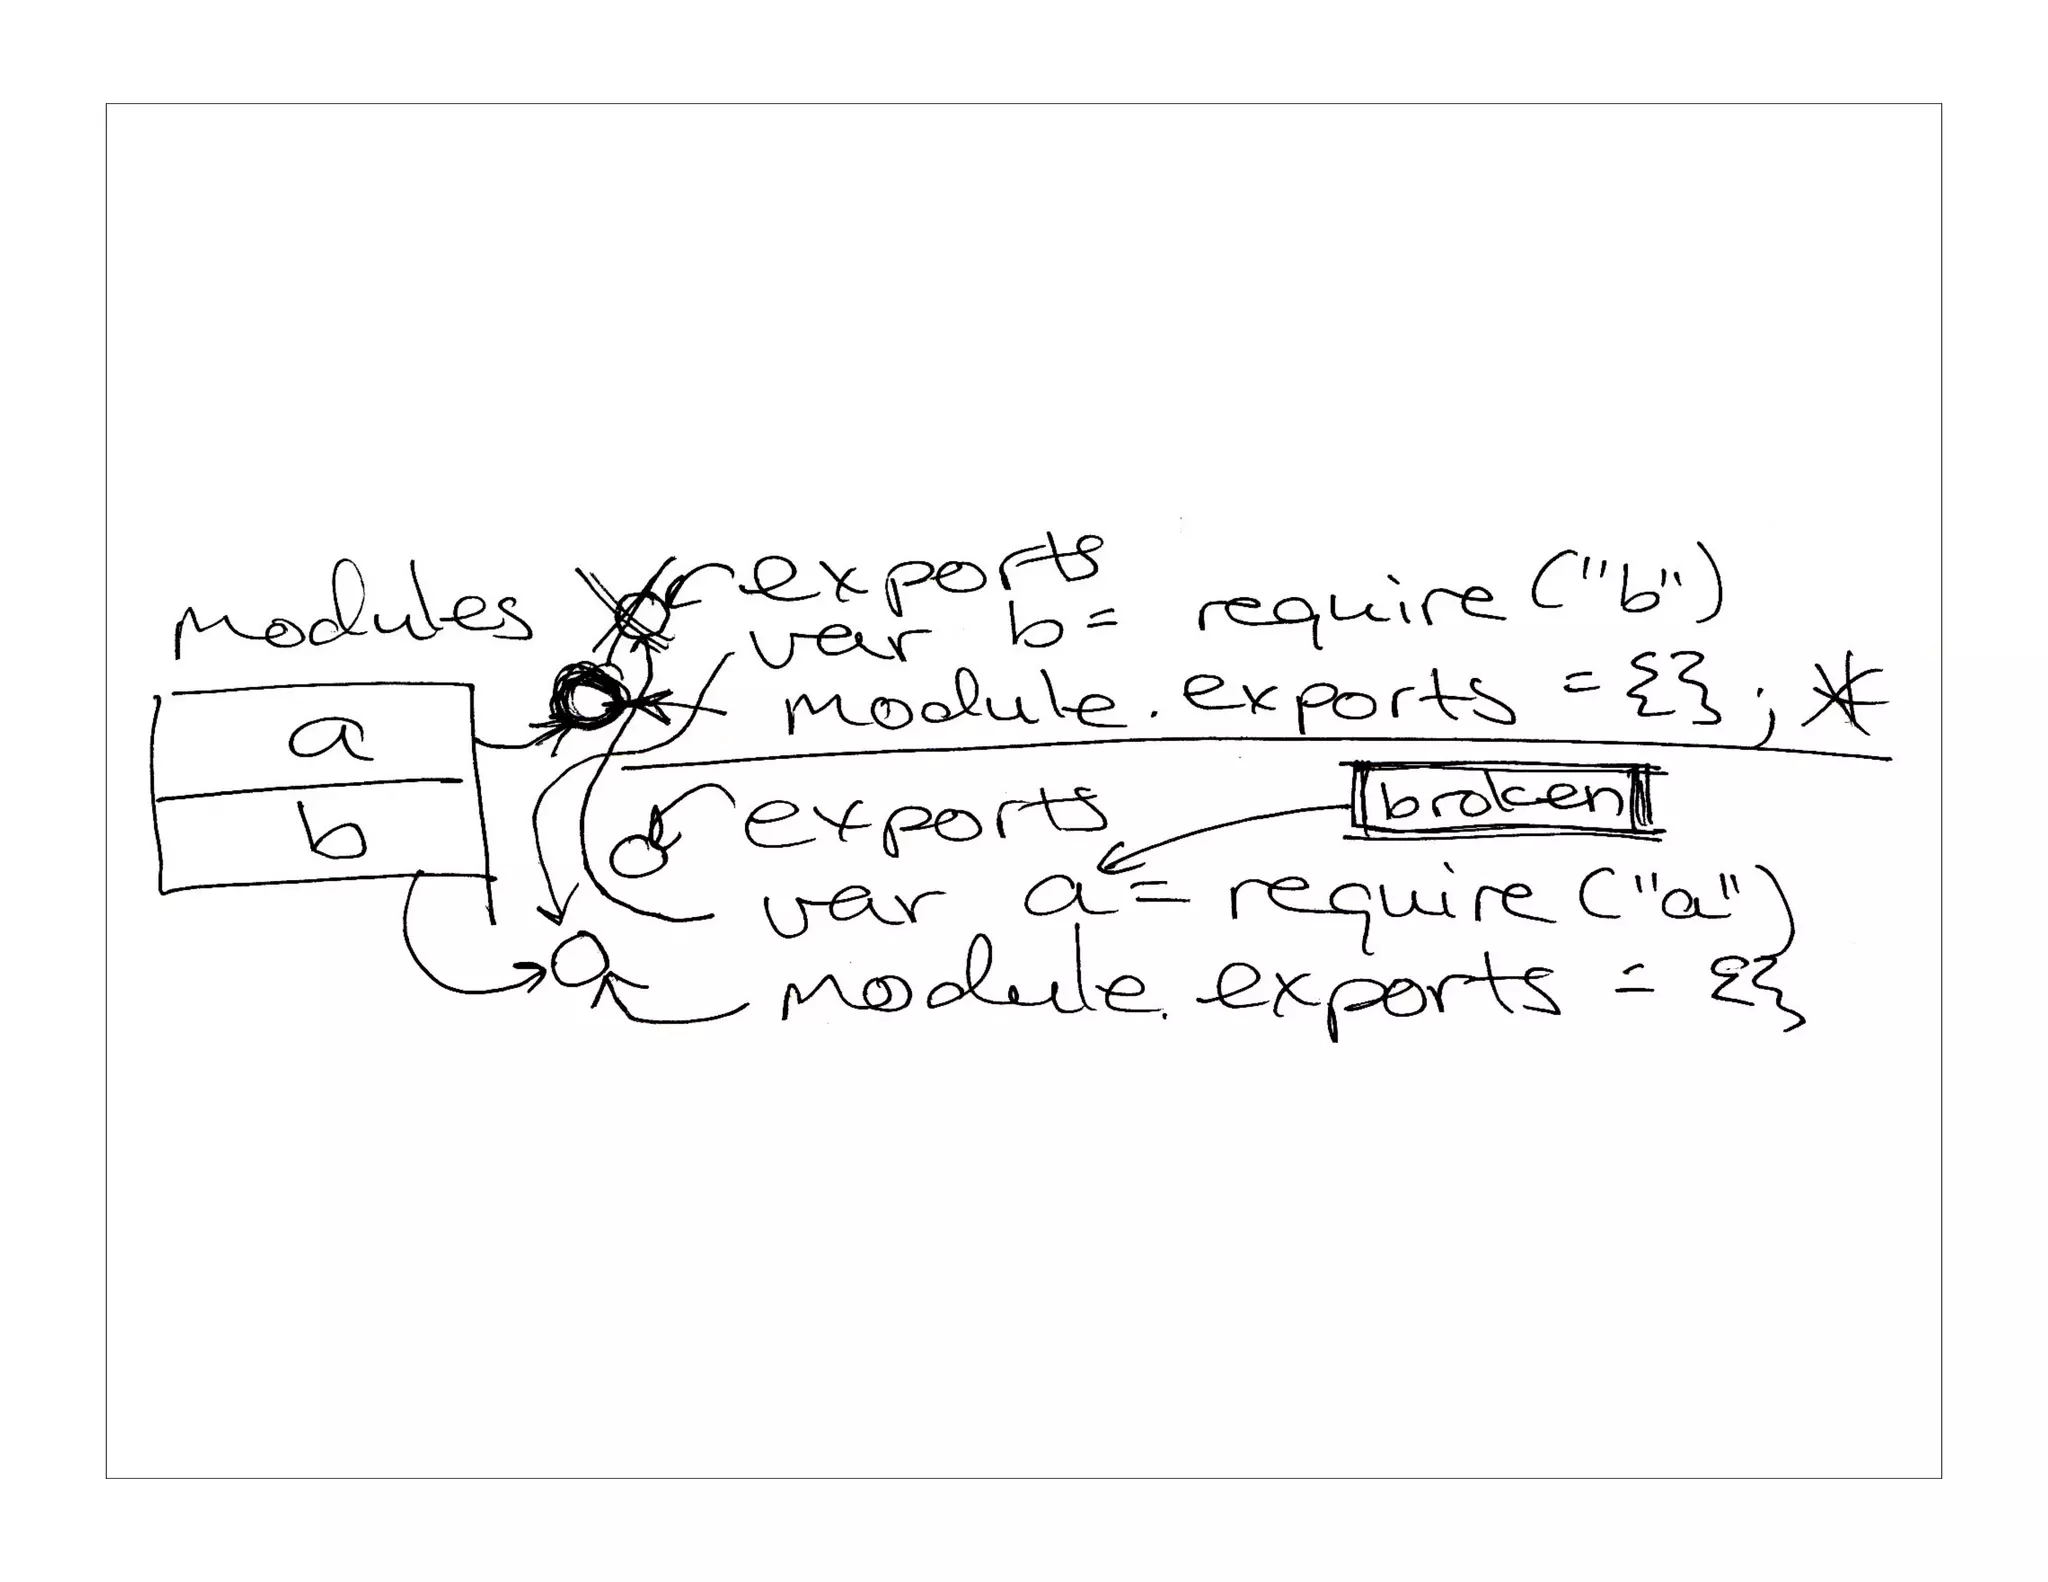 modules
a
b
exports
var b = require ("b")
module.exports = {}; *
broken
exports
var a = require ("a")
module.exports = {}